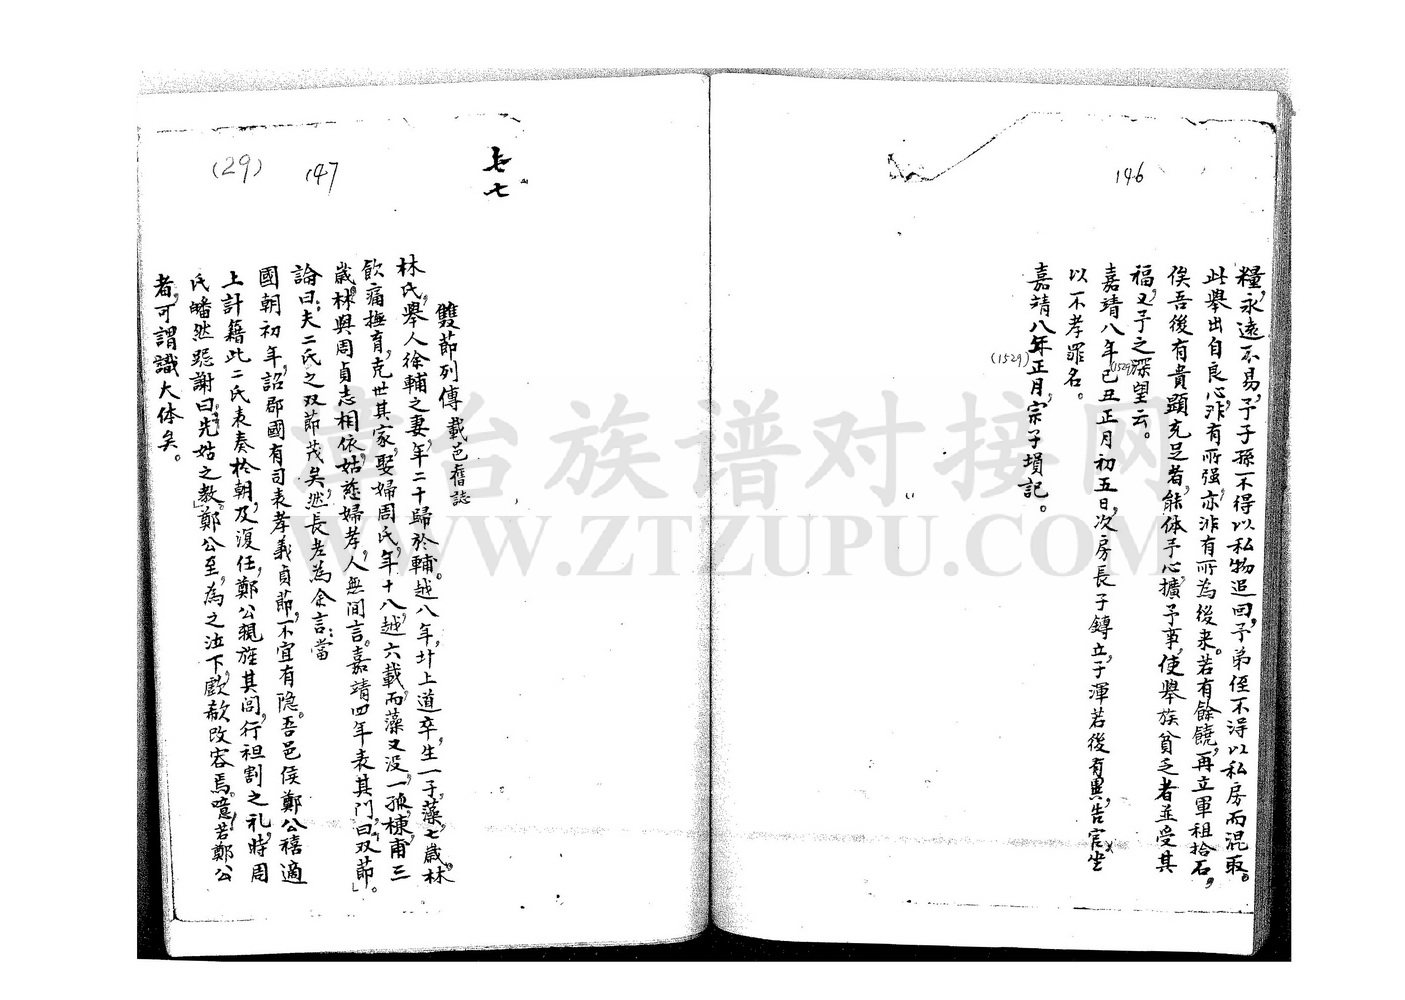 146
糧，永遠不易，予子孫一不得以私物追回，予弟侄不得以私房而混取。
此舉出自良心，非有所强，亦非有所為後来。若有餘饒，再立軍租拾石，
俟吾後有貴顯充足者，能体予心，擴予事，使舉族貧乏者並受其
福，又予之深望云。
嘉靖八年(1529)己丑正月初五日，次房長子鏄立，子渾若後有異，告官坐
以不孝罪名。
嘉靖八年(1529)正月，宗子塤記。
七
147
(29)
雙節列傳 載邑舊誌
林氏，舉人徐輔之妻，年二十歸於輔。越八年，圤上道卒，生一子，藻，七歲。林
飲痛撫育，克世其家，娶婦周氏，年十八，越六載，而藻又没，一孤，棟，甫三
歲，林與周貞志相依，姑慈婦孝，人無间言。嘉靖四年表其門曰，「双節」。
論曰：夫二氏之双節茂矣，然長老為余言：當
國朝初年，詔郡國有司表孝義貞節，不宜有隐。吾邑侯鄭公禧適
上計籍此二氏表奏於朝，及復任，鄭公親旌其閭，行袒割之礼，時周
氏皤然跽謝曰：「先姑之教」。鄭公至，為之泣下，歔欷改容焉。噫，若鄭公
者，可謂識大体矣。
臺台族谱对接网
WWW.ZTZUPU.COM